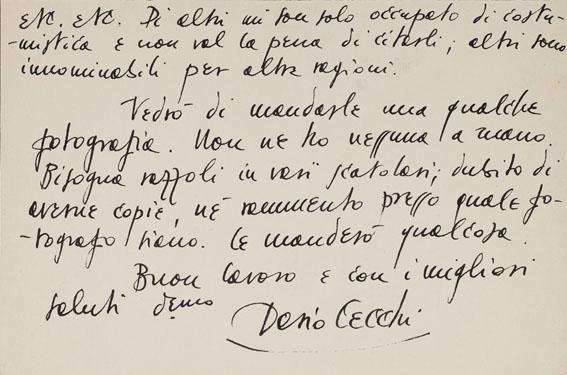 etc. etc. Di altri mi son solo occupato di costu-
-mistica e non val la pena di citarli; altri sono
innominabili per altre ragioni.
Vedrò di mandarle una qualche
fotografia. Non ne ho nessuna a mano.
Bisogna razzoli in varî scatolari; dubito di
averne copie, nè rammento presso quale fo-
-tografo siano. Le manderò qualcosa.
Buon lavoro e con i migliori
saluti
Dario Cecchi